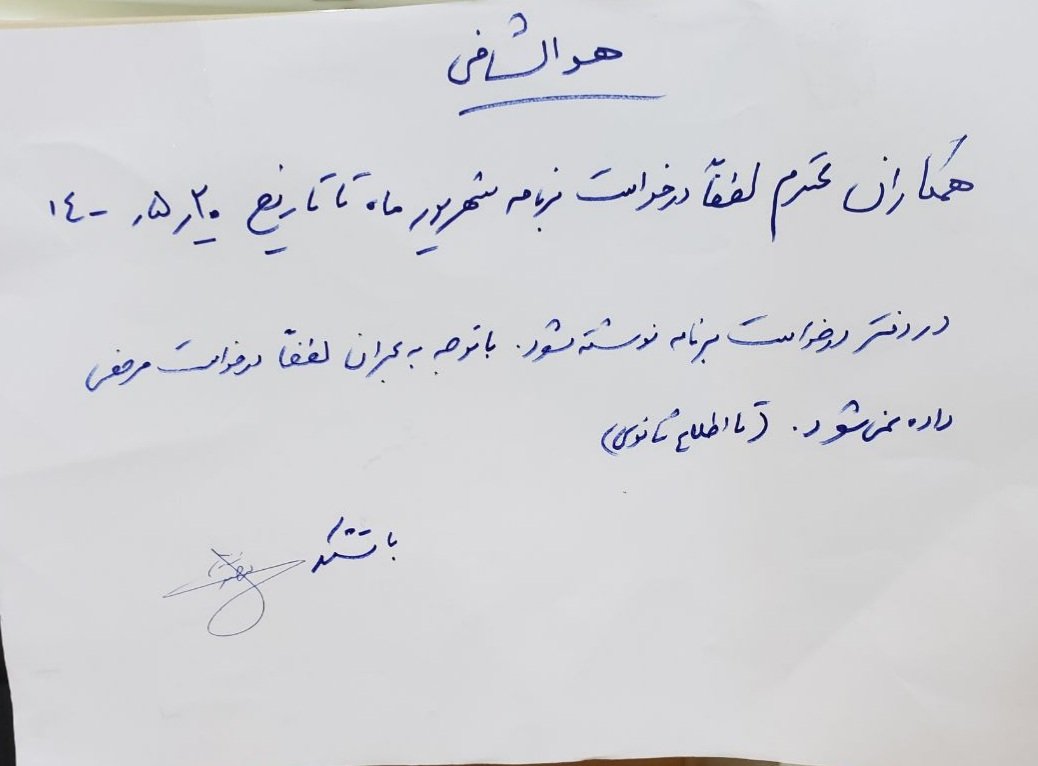 هوالشافی
همکاران محترم لطفاً درخواست برنامه شهریور ماه تا تاریخ ۱۴۰۰٫۵٫۲۰
در دفتر درخواست برنامه نوشته شود. با توجه به بحران لطفاً درخواست مرخصی
داده نمی‌شود. (تا اطلاع ثانوی)
با تشکر